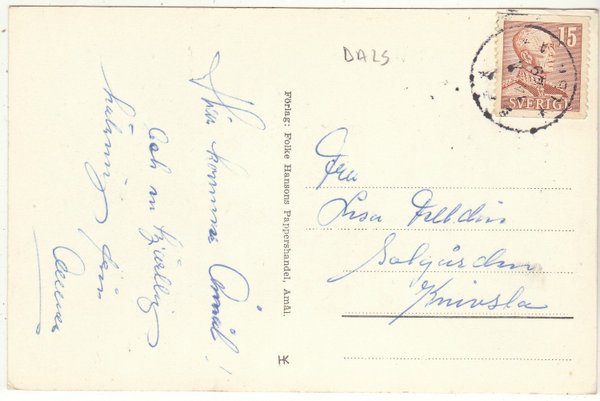 DALS
15
SVERIGE
Här kommer Åmål!
Och en hjärtlig
hälsning från
Förlag: Folke Hansons Pappershandel, Åmål.
Fru
Lisa
Solgården
Knivsta
HK